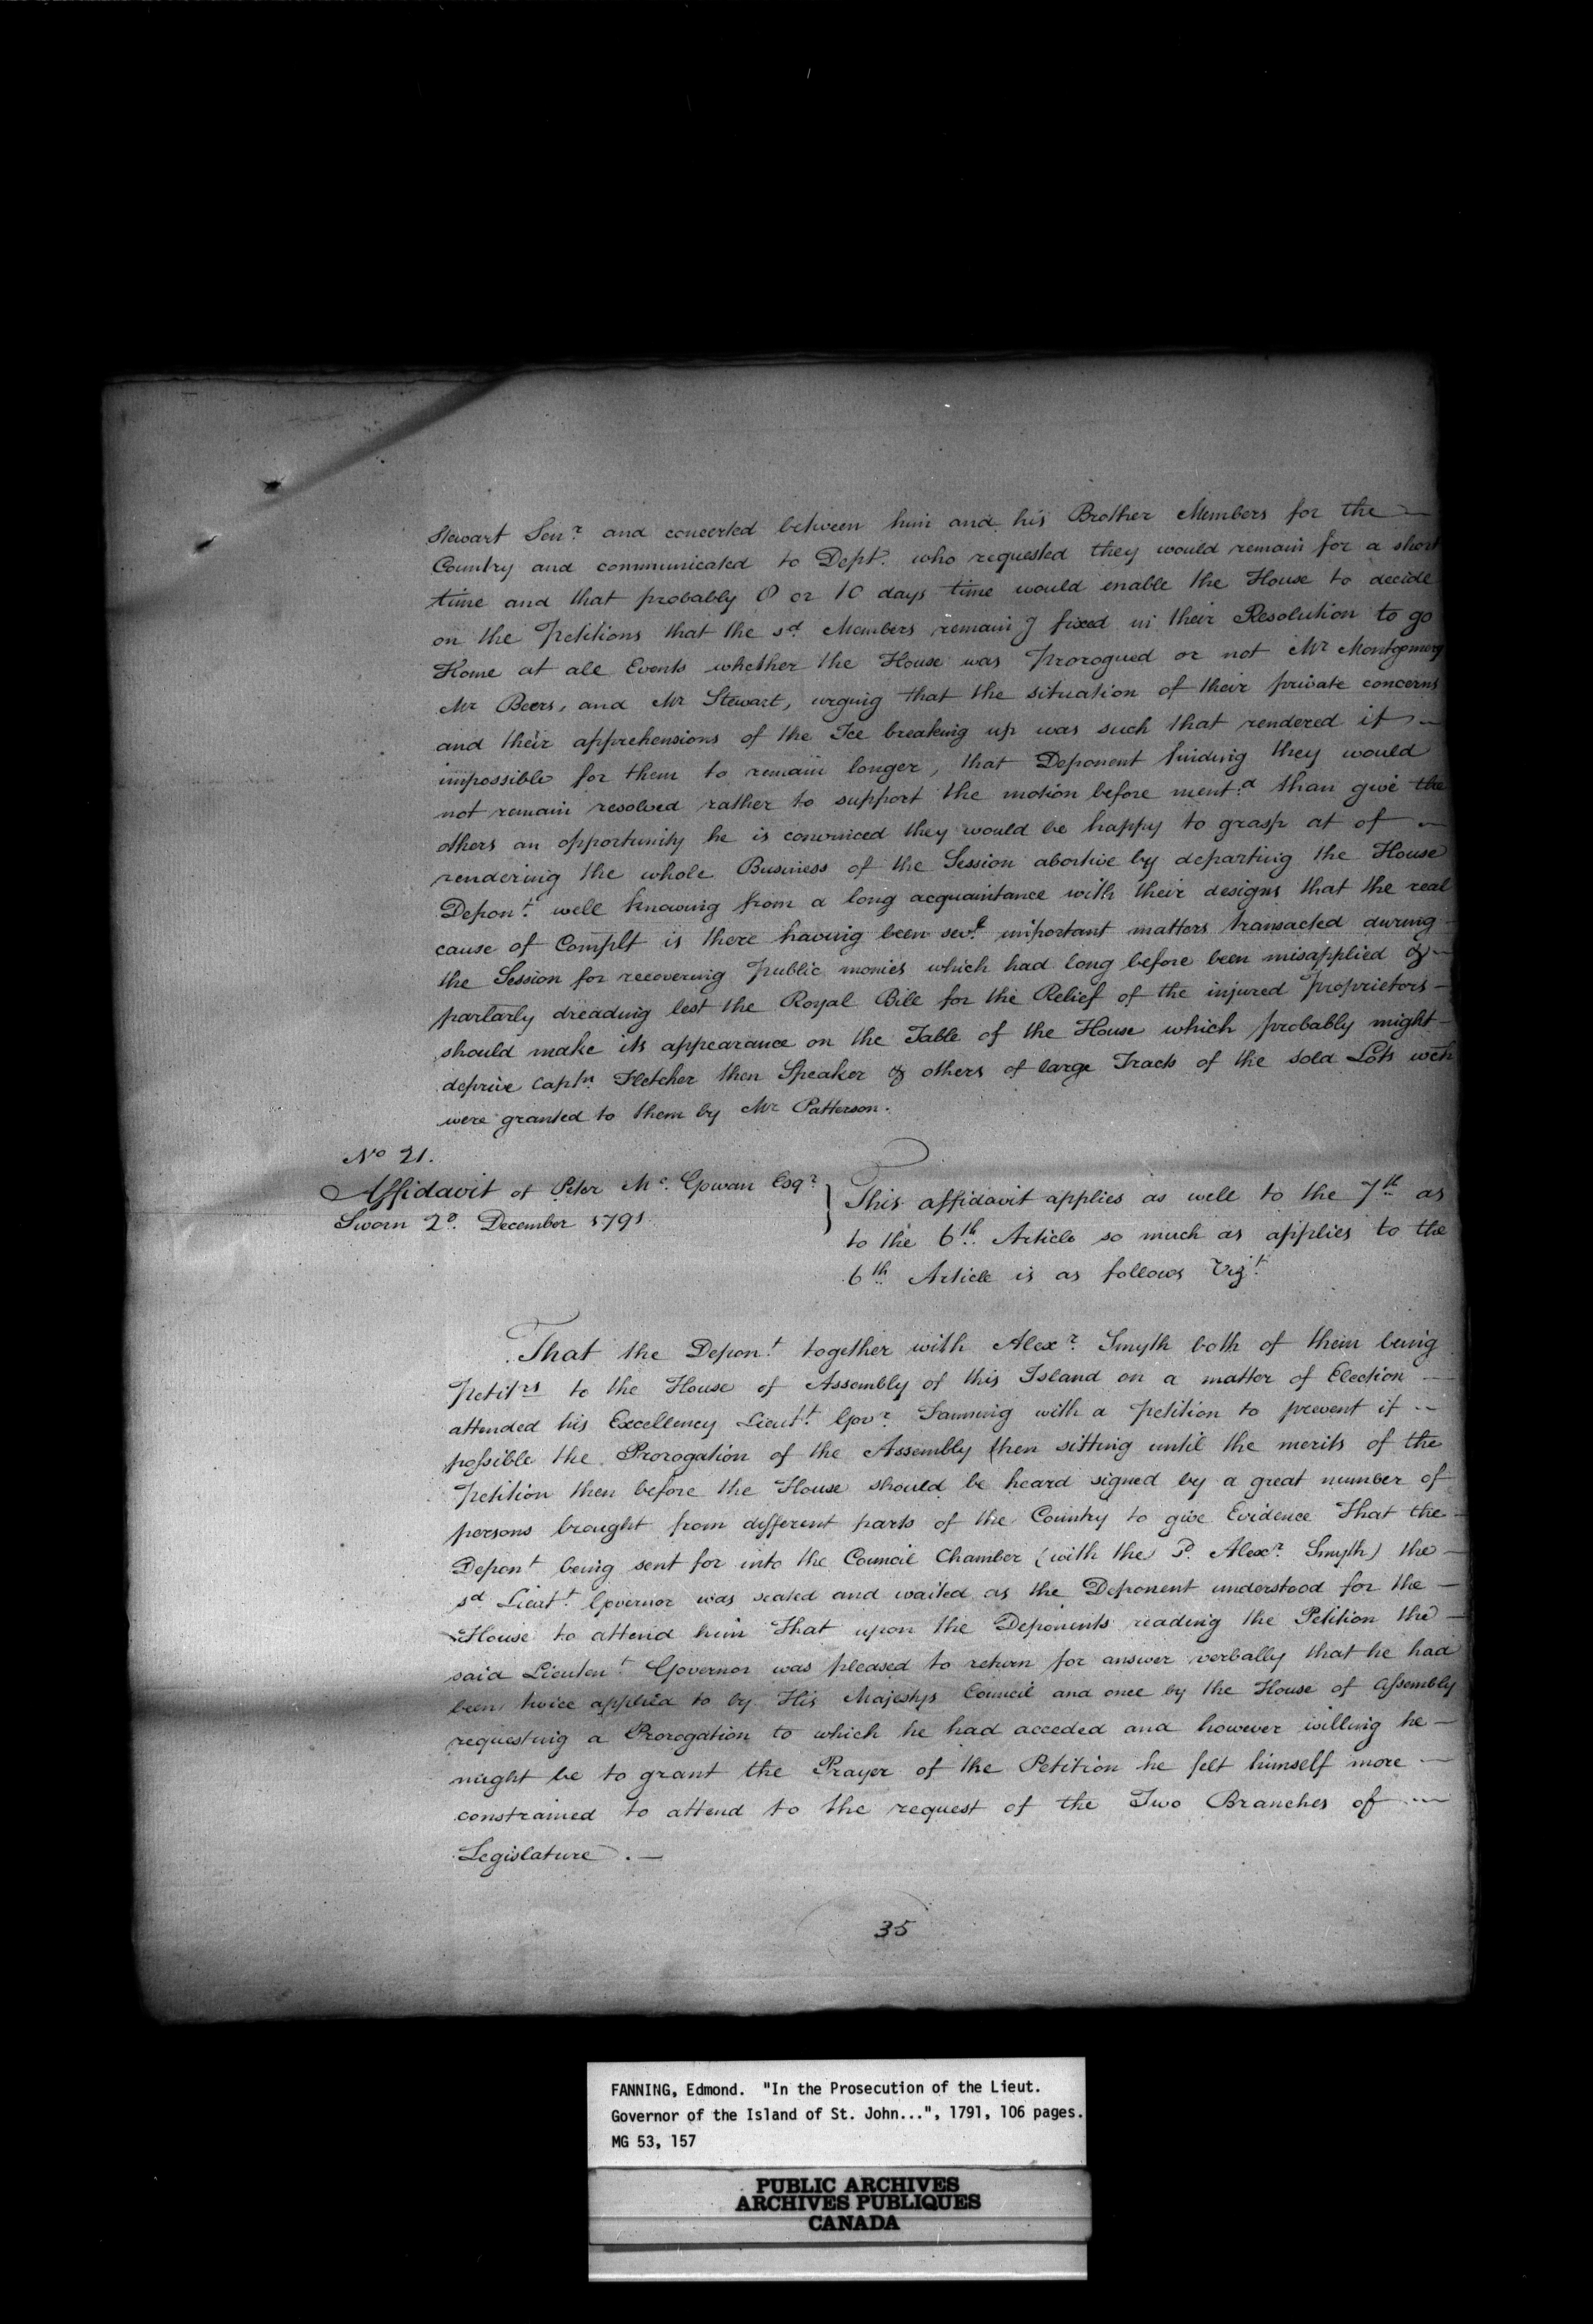 Stewart Sen.r and concerted between him and his Brother Members for the
Country and communicated to Dept. who requested they would remain for a short
time and that probably 8 or 10 days time would enable the House to decide
on the Petitions that the sd. Members remaing fixed in their Resolution to go
Home at all Events whether the House was Prorogued or not Mr Montgomery
Mr Beers, and Mr Stewart, urging that the situation of their private concerns
and their apprehensions of the Ice breaking up was such that rendered it
impossible for them to remain longer, that Deponent finding they would
not remain resolved rather to support the motion before ment.d than give the
others an opportunity he is convinced they would be happy to grasp at of
rendering the whole Business of the Session abortive by departing the House
Depon.t well knowing from a long acquaintance with their designs that the real
cause of Complt is there having been sev.l important matters transacted during
the Session for recovering Public monies which had long before been misapplied &
partarly dreading lest the Royal Bill for the Relief of the injured Proprietors
should make its appearance on the Table of the House which probably might
deprive Captn. Fletcher then Speaker & others of large Tracts of the sold Lots wch
were granted to them by Mr Patterson.
No 21.
Affidavit of Peter Mc. Gowan Esqr.
Sworn 2d. December 1791
This affidavit applies as well to the 7th as
to the 6th Article so much as applies to the
6th Article is as follows Vizt.
That the Depon.t together with Alexr. Smyth both of them being
Petitrs to the House of Assembly of this Island on a matter of Election
attended his Excellency Lieut.t Govr. Fanning with a Petition to prevent if
possible the Prorogation of the Assembly then sitting until the merits of the
Petition then before the House should be heard signed by a great number of
persons brought from different parts of the Country to give Evidence That the
Depont being sent for into the Council Chamber (with the Alexr. Smyth) the
sd Lieut.t Governor was seated and waited as the Deponent understood for the
House to attend him That upon the Deponents reading the Petition the
said Lieuten.t Governor was pleased to return for answer verbally that he had
been twice applied to by His Majestys Council and once by the House of Assembly
requesting a Prorogation to which he had acceded and however willing he
might be to grant the Prayer of the Petition he felt himself more
constrained to attend to the request of the Two Branches of
Legislature.
35
FANNING, Edmond. "In the Prosecution of the Lieut.
Governor of the Island of St. John...", 1791, 106 pages.
MG 53, 157
PUBLIC ARCHIVES
ARCHIVES PUBLIQUES
CANADA